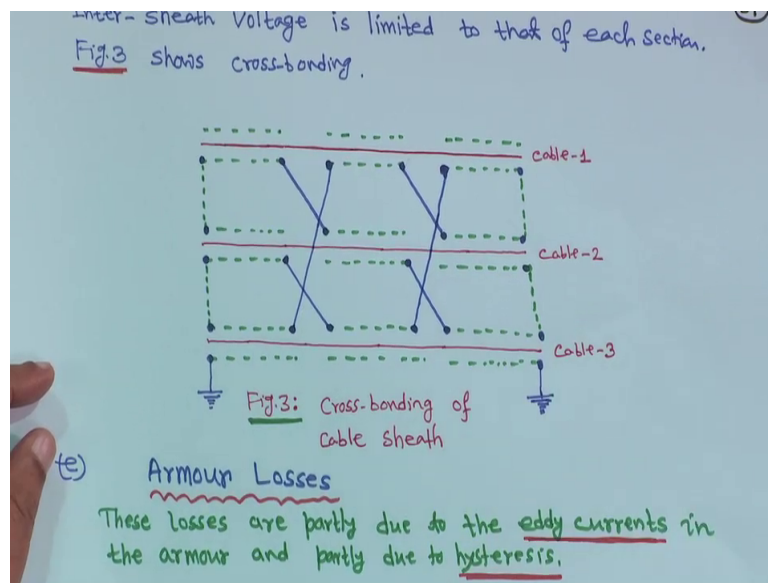 Inter-Sheath Voltage is limited to that of each section.
Fig.3 shows cross-bonding.
Cable-1
Cable-2
Cable-3
Fig.3: Cross-bonding of
Cable sheath
(e) Armour Losses
These losses are partly due to the eddy currents in
the armour and partly due to hysteresis.